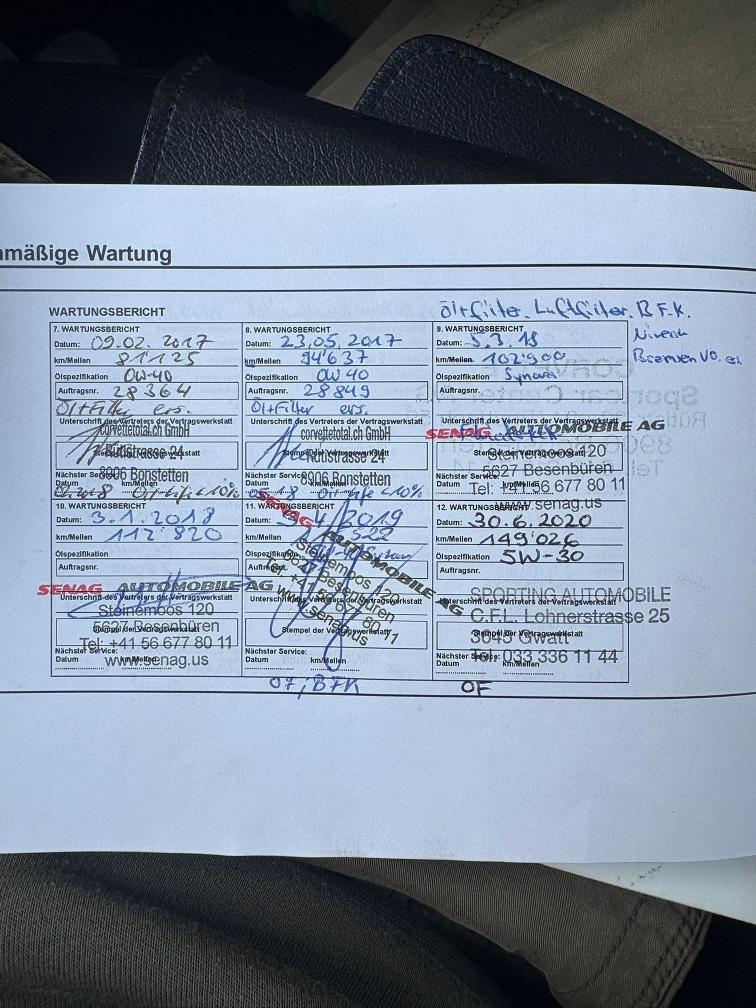 nmäßige Wartung
WARTUNGSBERICHT
Öl+filter. Luftfilter. B.F.K.
Niveau
Bremsen VO.
7. WARTUNGSBERICHT
Datum: 09.02. 2017
km/Meilen 81'125
Ölspezifikation 0W-40
Auftragsnr. 28364
Öl+Filter ers.
Unterschrift des Vertreters der Vertragswerkstatt
corvettetotal.ch GmbH
Rütistrasse 24
8906 Bonstetten
Nächster Service:
Datum km/Meilen
8. WARTUNGSBERICHT
Datum: 23.05. 2017
km/Meilen 94'637
Ölspezifikation 0W 40
Auftragsnr. 28849
Öl+Filter ers.
Unterschrift des Vertreters der Vertragswerkstatt
corvettetotal.ch GmbH
Rütistrasse 24
8906 Bonstetten
Nächster Service:
Datum km/Meilen
05.18 Oil-Life <10%
9. WARTUNGSBERICHT
Datum: 5.3.18
km/Meilen. 102'900
Ölspezifikation
Auftragsnr.
Unterschrift des Vertreters der Vertragswerkstatt
SENAG AUTOMOBILE AG
Steinemoos 120
Stempel der Vertragswerkstatt
5627 Besenbüren
Nächster Service:
Tel: +41 56 677 80 11
Datum km/Meilen
www.senag.us
10. WARTUNGSBERICHT
Datum: 3.1.2018
km/Meilen 112'820
Ölspezifikation
Auftragsnr.
SENAG AUTOMOBILE AG
Unterschrift des Vertreters der Vertragswerkstatt
Steinemoos 120
Stempel der Vertragswerkstatt
5627 Besenbüren
Tel: +41 56 677 80 11
Nächster Service:
Datum km/Meilen
www.senag.us
11. WARTUNGSBERICHT
Datum: 2019
km/Meilen
Ölspezifikation
Auftragsnr.
SENAG AUTOMOBILE AG
Steinemoos 120
5627 Besenbüren
Tel: +41 56 677 80 11
www.senag.us
Unterschrift des Vertreters der Vertragswerkstatt
Stempel der Vertragswerkstatt
Nächster Service:
Datum km/Meilen
12. WARTUNGSBERICHT
Datum: 30.6.2020
km/Meilen 149'026
Ölspezifikation 5W-30
Auftragsnr.
SPORTING AUTOMOBILE
Unterschrift des Vertreters der Vertragswerkstatt
C.F.L. Lohnerstrasse 25
Stempel der Vertragswerkstatt
3645 Gwatt
Nächster Service:
Tel. 033 336 11 44
Datum km/Meilen
BFK
OF